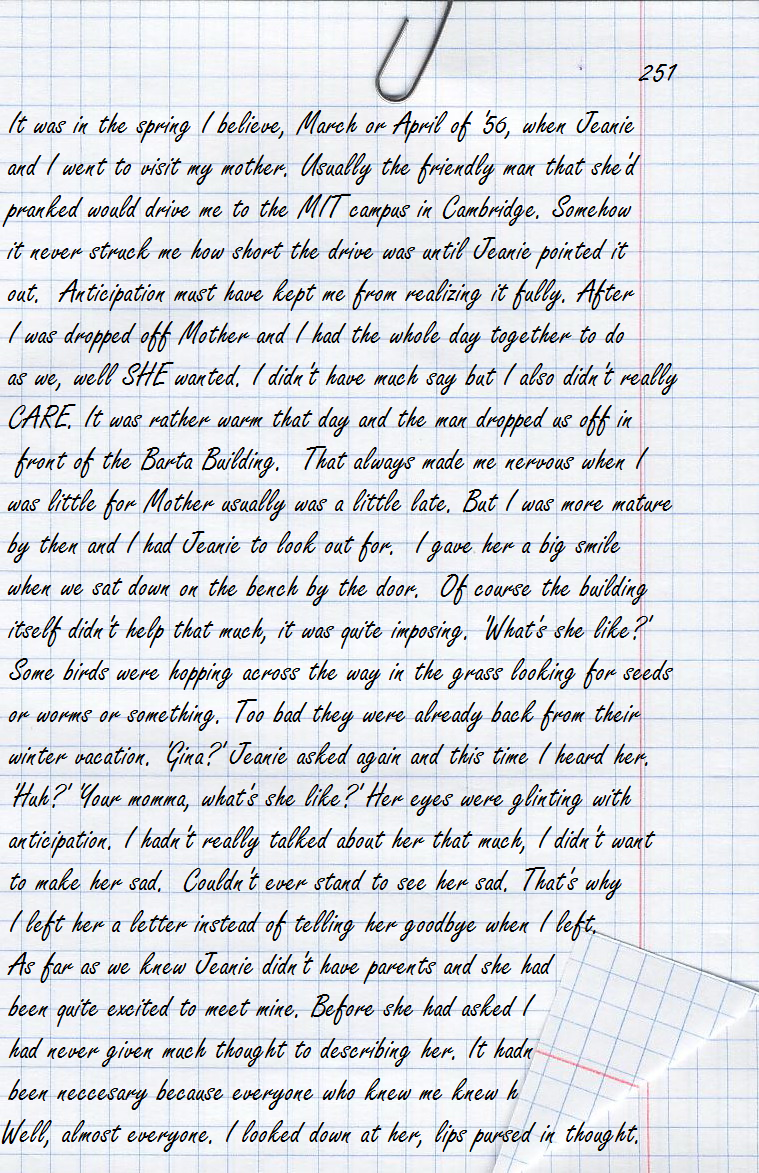 251
It was in the spring I believe, March or April of '56, when Jeanie
and I went to visit my mother. Usually the friendly man that she'd
pranked would drive me to the MIT campus in Cambridge. Somehow
it never struck me how short the drive was until Jeanie pointed it
out. Anticipation must have kept me from realizing it fully. After
I was dropped off Mother and I had the whole day together to do
as we, well SHE wanted. I didn't have much say but I also didn't really
CARE. It was rather warm that day and the man dropped us off in
front of the Barta Building. That always made me nervous when I
was little for Mother usually was a little late. But I was more mature
by then and I had Jeanie to look out for. I gave her a big smile
when we sat down on the bench by the door. Of course the building
itself didn't help that much, it was quite imposing. 'What's she like?'
Some birds were hopping across the way in the grass looking for seeds
or worms or something. Too bad they were already back from their
winter vacation. 'Gina?' Jeanie asked again and this time I heard her.
'Huh?' 'Your momma, what's she like?' Her eyes were glinting with
anticipation. I hadn't really talked about her that much, I didn't want
to make her sad. Couldn't ever stand to see her sad. That's why
I left her a letter instead of telling her goodbye when I left.
As far as we knew Jeanie didn't have parents and she had
been quite excited to meet mine. Before she had asked I
had never given much thought to describing her. It hadn
been neccesary because everyone who knew me knew h
Well, almost everyone. I looked down at her, lips pursed in thought.